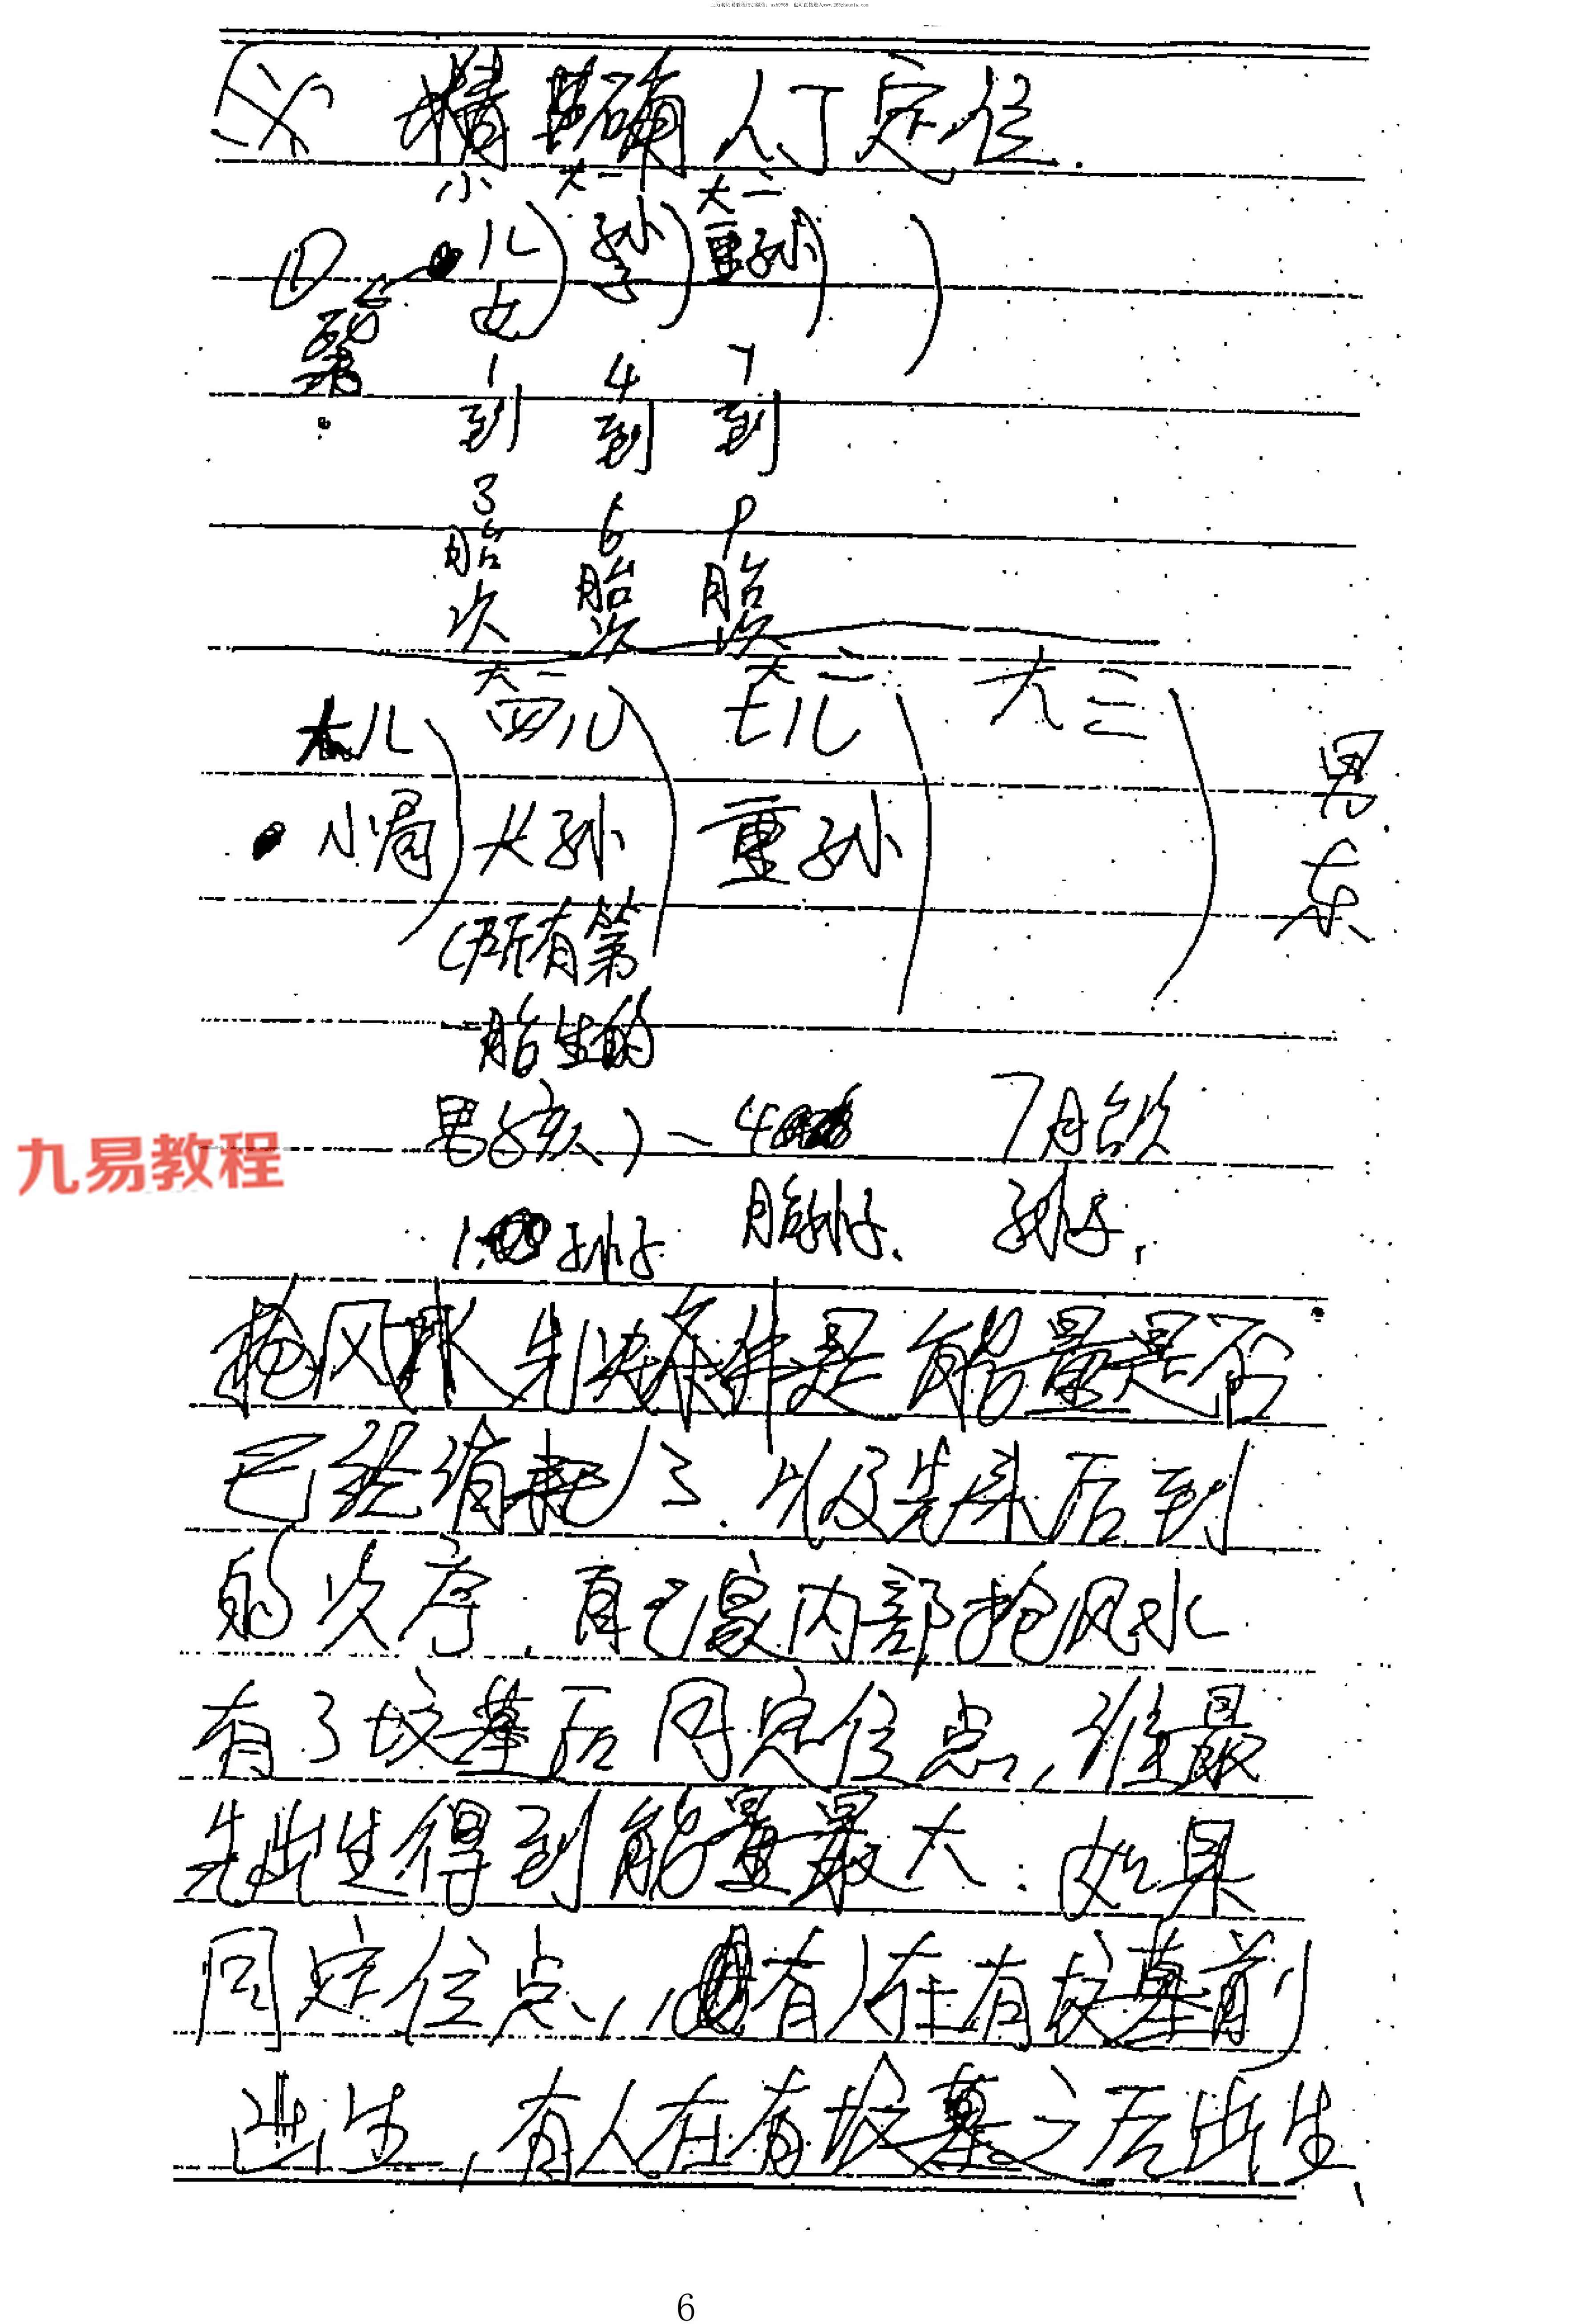 精确人丁定位.
小 大一 大二
儿女 孙子 重孙
1到3胎次 4到6胎次 7到9胎次
大一 大二 大三
大儿 四儿 七儿
小圈 大孙 重孙
男
东
(所有第
一胎生的
男孩) 4 7胎次
1. 孙子 胎孙子、 孙子,
抢风水先决条件是能量是否
已经消耗了.以及先来后到
的次序.自己家内部抢风水
有了坟墓后同定位点,谁最
先出生得到能量最大.如果
同定位点,有人在有坟墓前
出生,有人在有坟墓之后出生、
九易教程
6